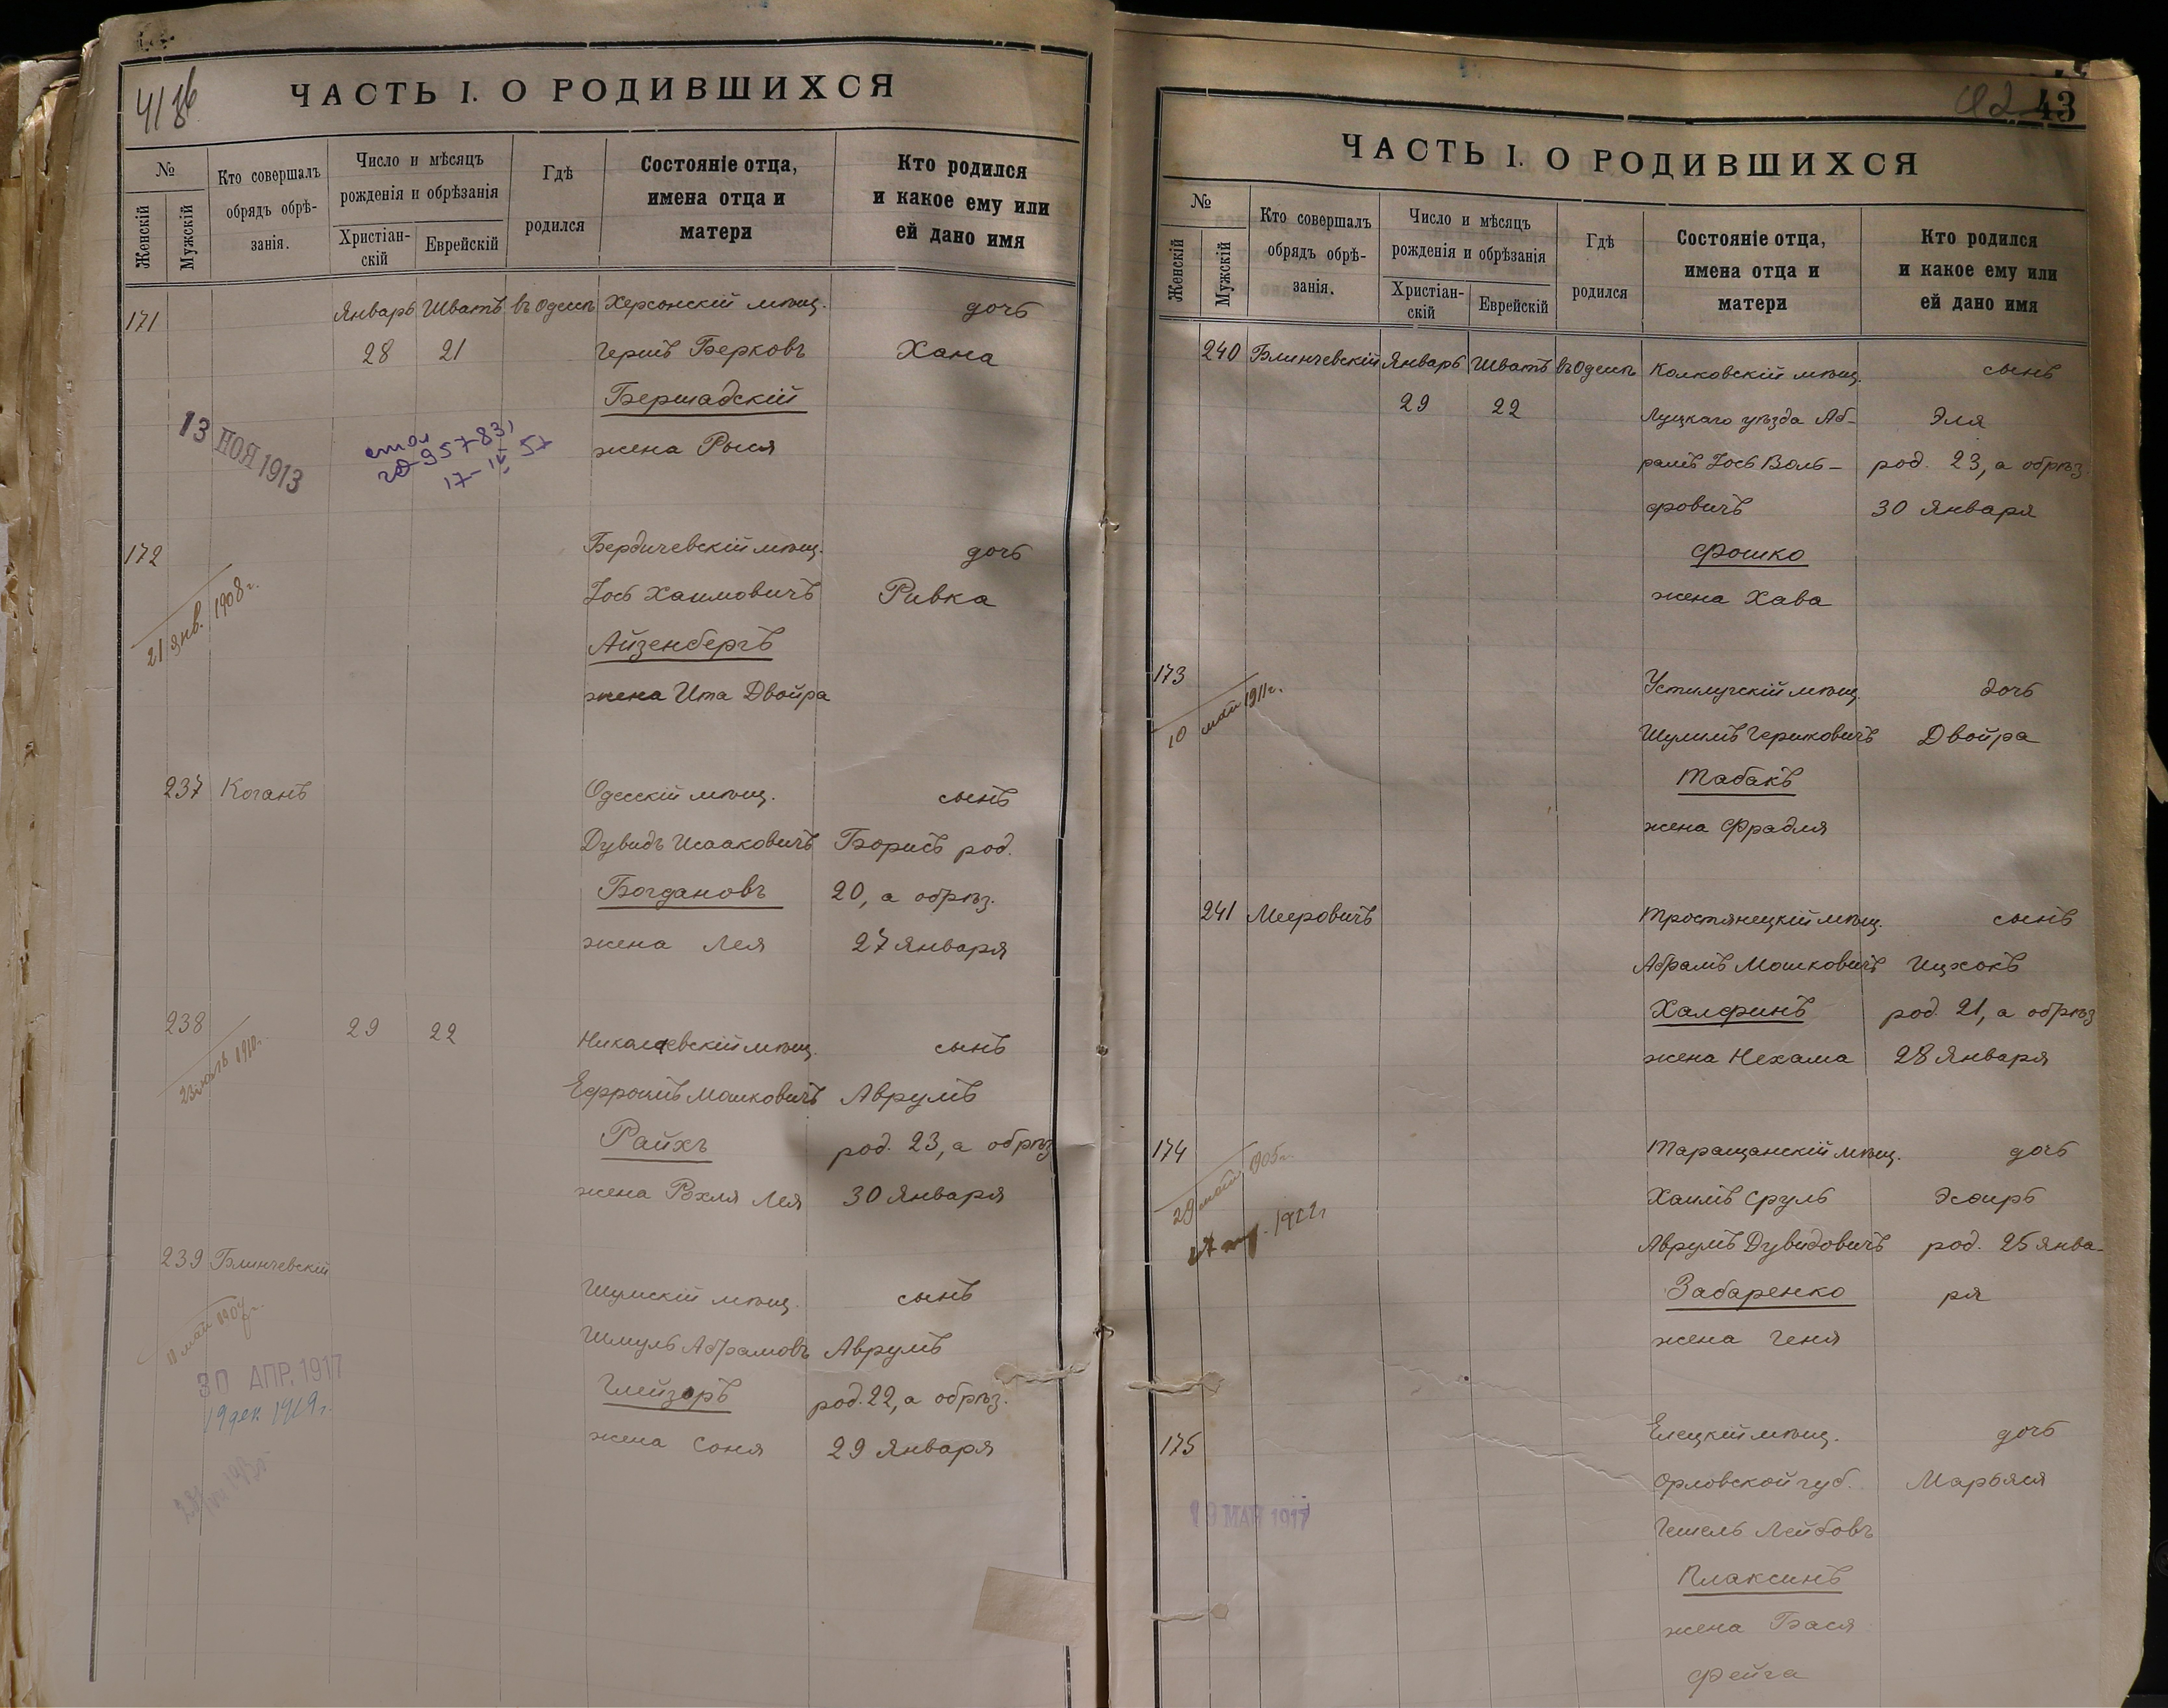 41 об
ЧАСТЬ I. О РОДИВШИХСЯ
№
Женскій
Мужскій
Кто совершалъ
обрядъ обрѣ-
занія.
Число и мѣсяцъ
рожденія и обрѣзанія
Христіан-
скій
Еврейскій
Гдѣ
родился
Состояніе отца,
имена отца и
матери
Кто родился
и какое ему или
ей дано имя
171 Январь Шватъ въ Одессѣ Херсонскій мѣщ. дочь
28 21 Гершъ Берковъ Хана
Бершадскій
жена Рыся
13 НОЯ 1913
17-IV 57
172 Бердичевскій мѣщ. дочь
Іось Хаимовичъ Ривка
Айзенбергъ
жена Ита Двойра
21 янв. 1908 г.
237 Коганъ Одесскій мѣщ. сынъ
Дувидъ Исааковичъ Борисъ род.
Богдановъ 20, а обрѣз.
жена Лея 27 Января
238 29 22 Николаевскій мѣщ. сынъ
Ефроимъ Мошковичъ Аврумъ
Райхъ род. 23, а обрѣз
жена Рохля Лея 30 Января
239 Блинчевскій Шумскій мѣщ. сынъ
Шмуль Абрамовъ Аврумъ
Глейзоръ род. 22, а обрѣз.
жена Соня 29 Января
30 АПР. 1917
19 дек. 1919 г.
42 43
ЧАСТЬ I. О РОДИВШИХСЯ
№
Женскій
Мужскій
Кто совершалъ
обрядъ обрѣ-
занія.
Число и мѣсяцъ
рожденія и обрѣзанія
Христіан-
скій
Еврейскій
Гдѣ
родился
Состояніе отца,
имена отца и
матери
Кто родился
и какое ему или
ей дано имя
240 Блинчевскій Январь Шватъ въ Одессѣ Колковскій мѣщ. сынъ
29 22 Луцкаго уѣзда Аб- Эля
рамъ Іось Воль- род. 23, а обрѣз.
фовичъ 30 Января
Фошко
жена Хава
173 Устилугскій мѣщ. дочь
10 май 1911 г.
Шулимъ Гершковичъ Двойра
Табакъ
жена Фрадля
241 Мееровичъ Тростянецкій мѣщ. сынъ
Абрамъ Мошковичъ Ицхокъ
Халфинъ род. 21, а обрѣз
жена Нехама 28 Января
174 Таращанскій мѣщ. дочь
Хаимъ Сруль Эсфирь
Аврумъ Дувидовичъ род. 25 Янва-
Забаренко ря
жена Геня
175 Елецкій мѣщ. дочь
Орловской губ. Марьяся
Гешель Лейбовъ
19 МАЯ 1917
Плаксинъ
жена Бася
Фейга